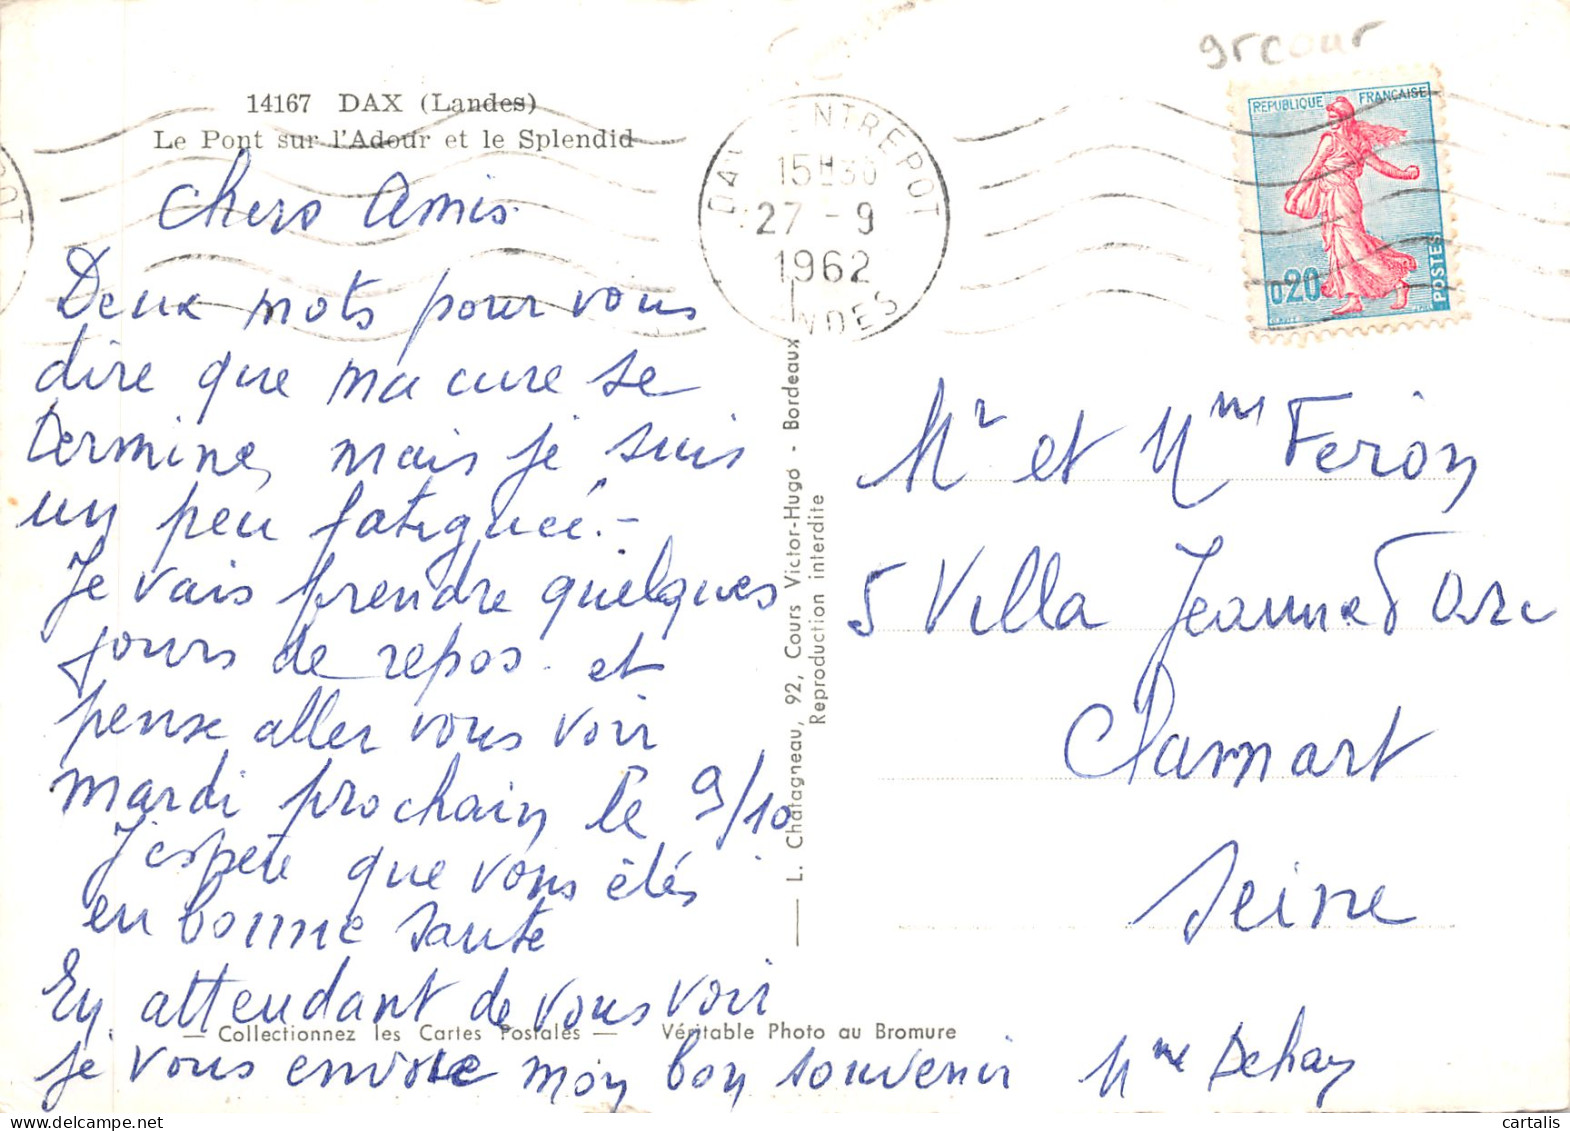 grcour
14167 DAX (Landes)
Le Pont sur l'Adour et le Splendid
DAX ENTREPOT
15H30
27-9
1962
LANDES
REPUBLIQUE FRANÇAISE
0,20
POSTES
Chers Amis.
Deux mots pour vous
dire que ma cure se
termine, mais je suis
un peu fatiguée. -
Je vais prendre quelques
jours de repos. et
pense aller vous voir
mardi prochain le 9/10
J'espère que vous êtes
en bonne santé
En attendant de vous voir
je vous envoie mon bon souvenir Mme Dehay
Mr et Mme Feron
5 Villa Jeanne d'Arc
Clamart
Seine
L. Chatagneau, 92, Cours Victor-Hugo - Bordeaux
Reproduction interdite
— Collectionnez les Cartes Postales — Véritable Photo au Bromure
cartalis